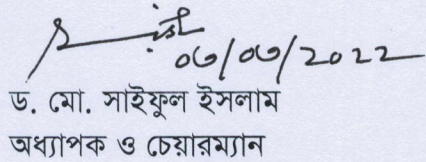 ০৩/০৩/2022
ড. মো. সাইফুল ইসলাম
অধ্যাপক ও চেয়ারম্যান